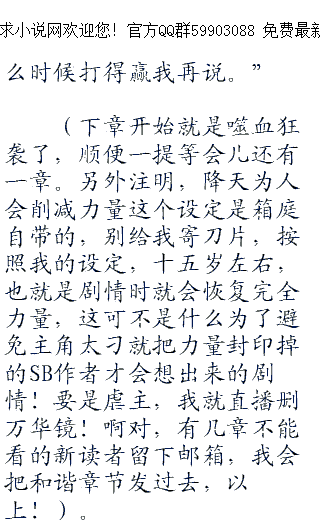 求小说网欢迎您！官方QQ群59903088 免费最新
么时候打得赢我再说。”
（下章开始就是噬血狂
袭了，顺便一提等会儿还有
一章。另外注明，降天为人
会削减力量这个设定是箱庭
自带的，别给我寄刀片，按
照我的设定，十五岁左右，
也就是剧情时就会恢复完全
力量，这可不是什么为了避
免主角太刁就把力量封印掉
的SB作者才会想出来的剧
情！要是虐主，我就直播删
万华镜！啊对，有几章不能
看的新读者留下邮箱，我会
把和谐章节发过去，以
上！）。